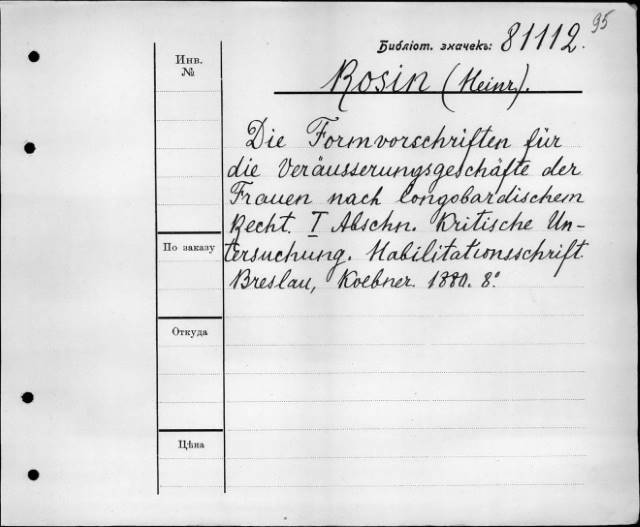 95
Библіот. значекъ: 81112.
Инв.
№
Rosin (Heinr.).
Die Formvorschriften für
die Veräusserungsgeschäfte der
Frauen nach longobardischem
Recht. I Abschn. Kritische Un-
tersuchung. Habilitationsschrift.
Breslau, Koebner. 1880. 8°.
По заказу
Откуда
Цѣна